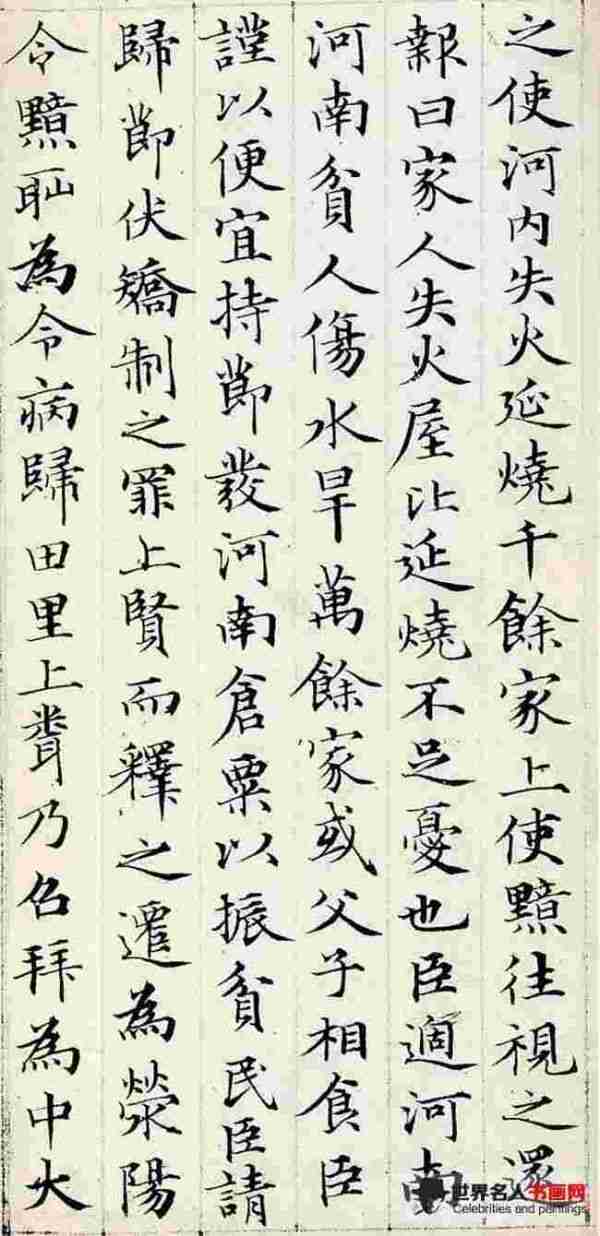 之使河内失火延燒千餘家上使黯往視之還
報曰家人失火屋比延燒不足憂也臣適河南
河南貧人傷水旱萬餘家或父子相食臣
謹以便宜持節發河南倉粟以振貧民臣請
歸節伏矯制之罪上賢而釋之遷為滎陽
令黯恥為令病歸田里上聞乃召拜為中大
世界名人书画网
Celebrities and paintings